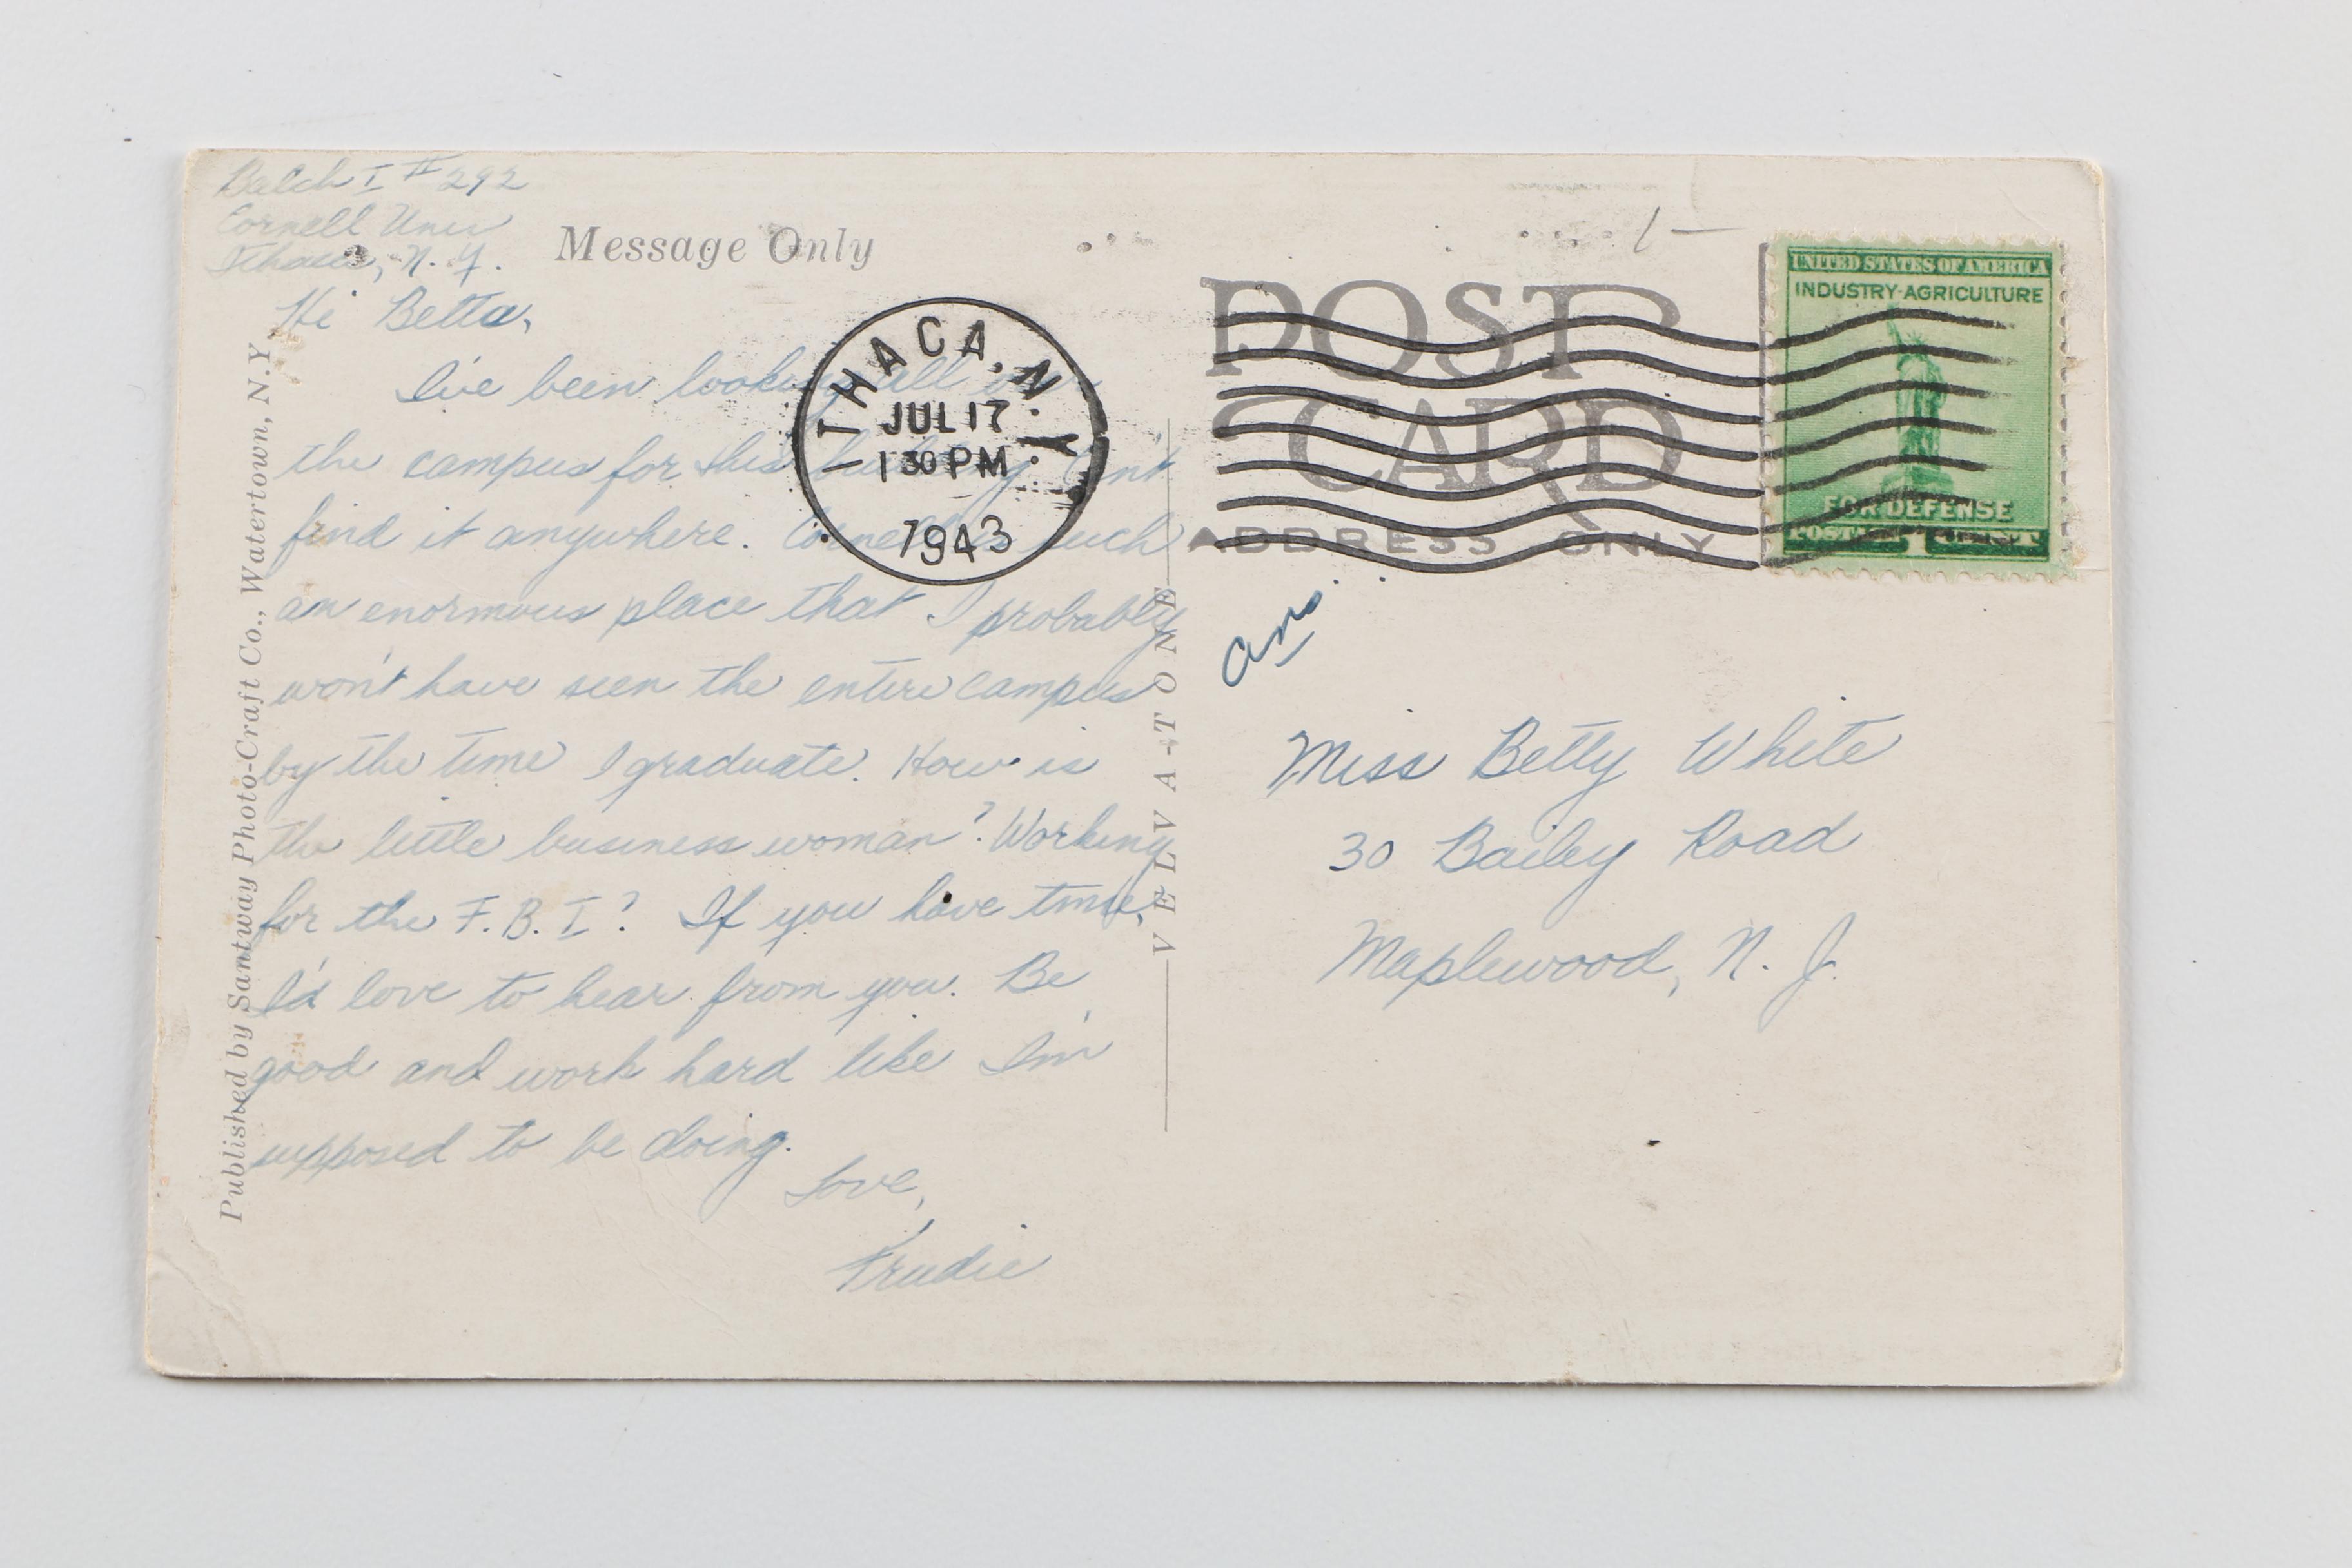 Balch I #292
Cornell Univ
Ithaca, N.Y.
Message Only
Hi Betta,
I've been looking all over
the campus for this building. Can't
find it anywhere. Cornell is such
an enormous place that I probably
won't have seen the entire campus
by the time I graduate. How is
the little business woman? Working
for the F.B.I? If you have time,
I'd love to hear from you. Be
good and work hard like I'm
supposed to be doing.
Love,
Trudie
Published by Santway Photo-Craft Co., Watertown, N.Y.
VELVA-TONE
ITHACA, N.Y.
JUL 17
1 30 PM
1943
POST
CARD
ADDRESS ONLY
UNITED STATES OF AMERICA
INDUSTRY·AGRICULTURE
FOR DEFENSE
POSTAGE 1 CENT
Ans.
Miss Betty White
30 Bailey Road
Maplewood, N.J.